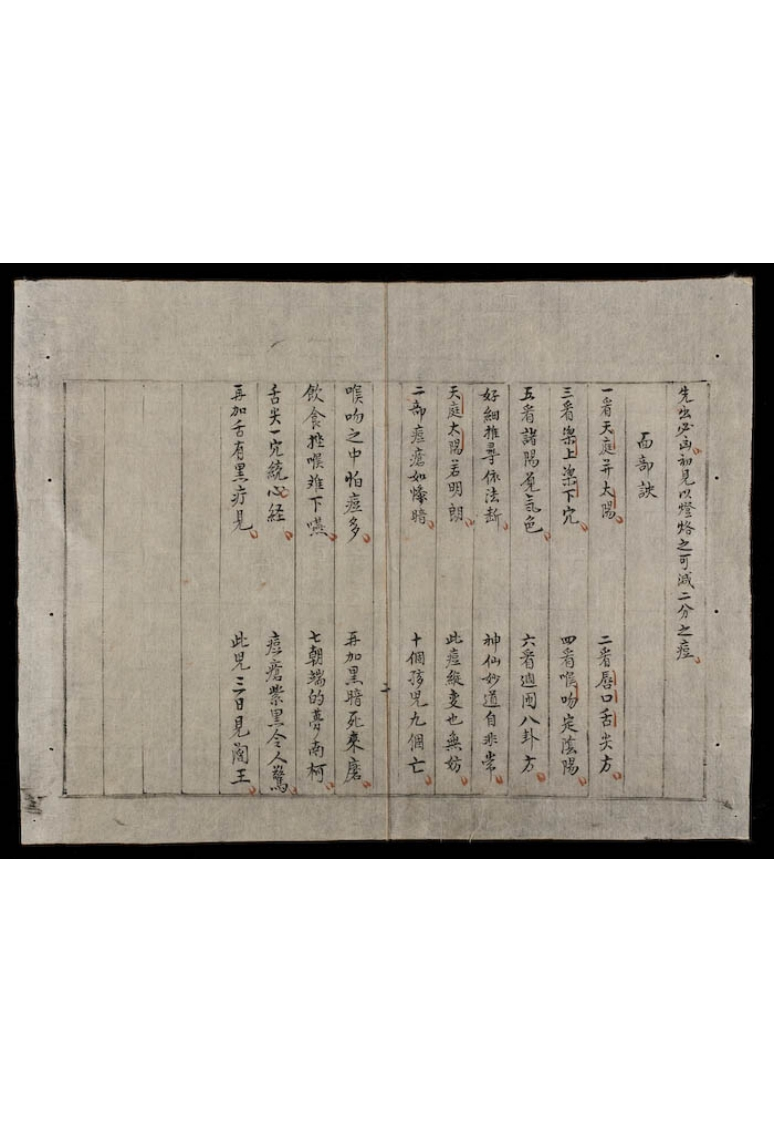 先出必凶初見以燈烙之可減二分之痘
面部訣
一看天庭并太陽 二看唇口舌尖方
三看梁上梁下穴 四看喉吻定陰陽
五看諸陽覓氣色 六看週圍八卦方
好細推尋依法断 神仙妙道自非常
天庭太陽若明朗 此痘縱变也無妨
二部痘瘡如慘暗 十個孩児九個亡
二
喉吻之中怕痘多 再加黑暗死來磨
飲食挫喉难下嚥 七朝端的夢南柯
舌尖一穴統心経 痘瘡紫黑令人驚
再加舌有黒疔見 此児三日見閻王